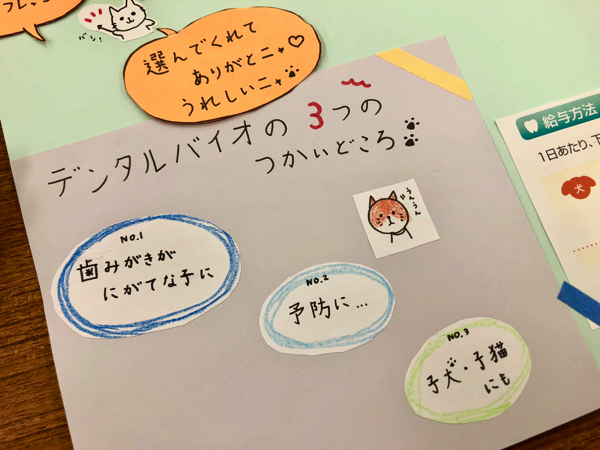 バシ!
選んでくれて
ありがとニャ♡
うれしいニャ
デンタルバイオの3つの
つかいどころ
うんうん
NO.1
歯みがきが
にがてな子に
NO.2
予防に…
NO.3
子犬・子猫
にも
給与方法
1日あたり、下
犬